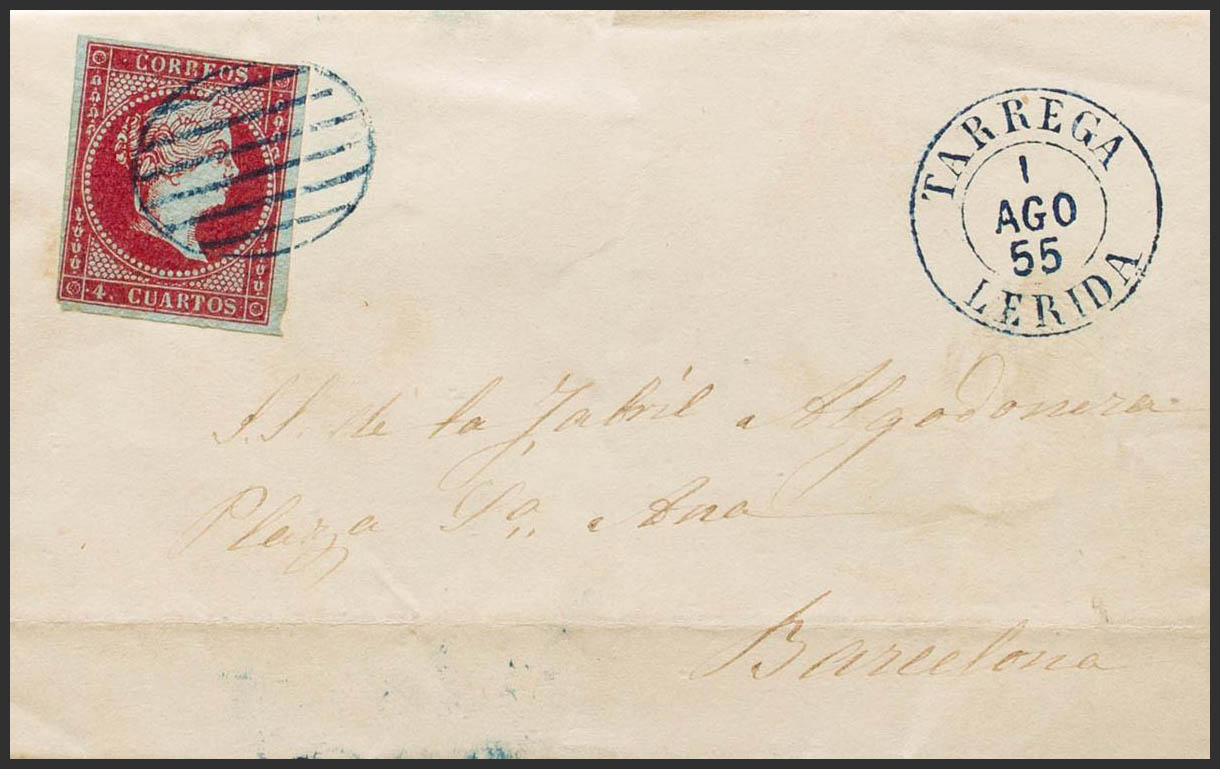 CORREOS
4. CUARTOS
TARREGA
1
AGO
55
LERIDA
S.S. de la Fabril Algodonera
Plaza Sª. Ana
Barcelona